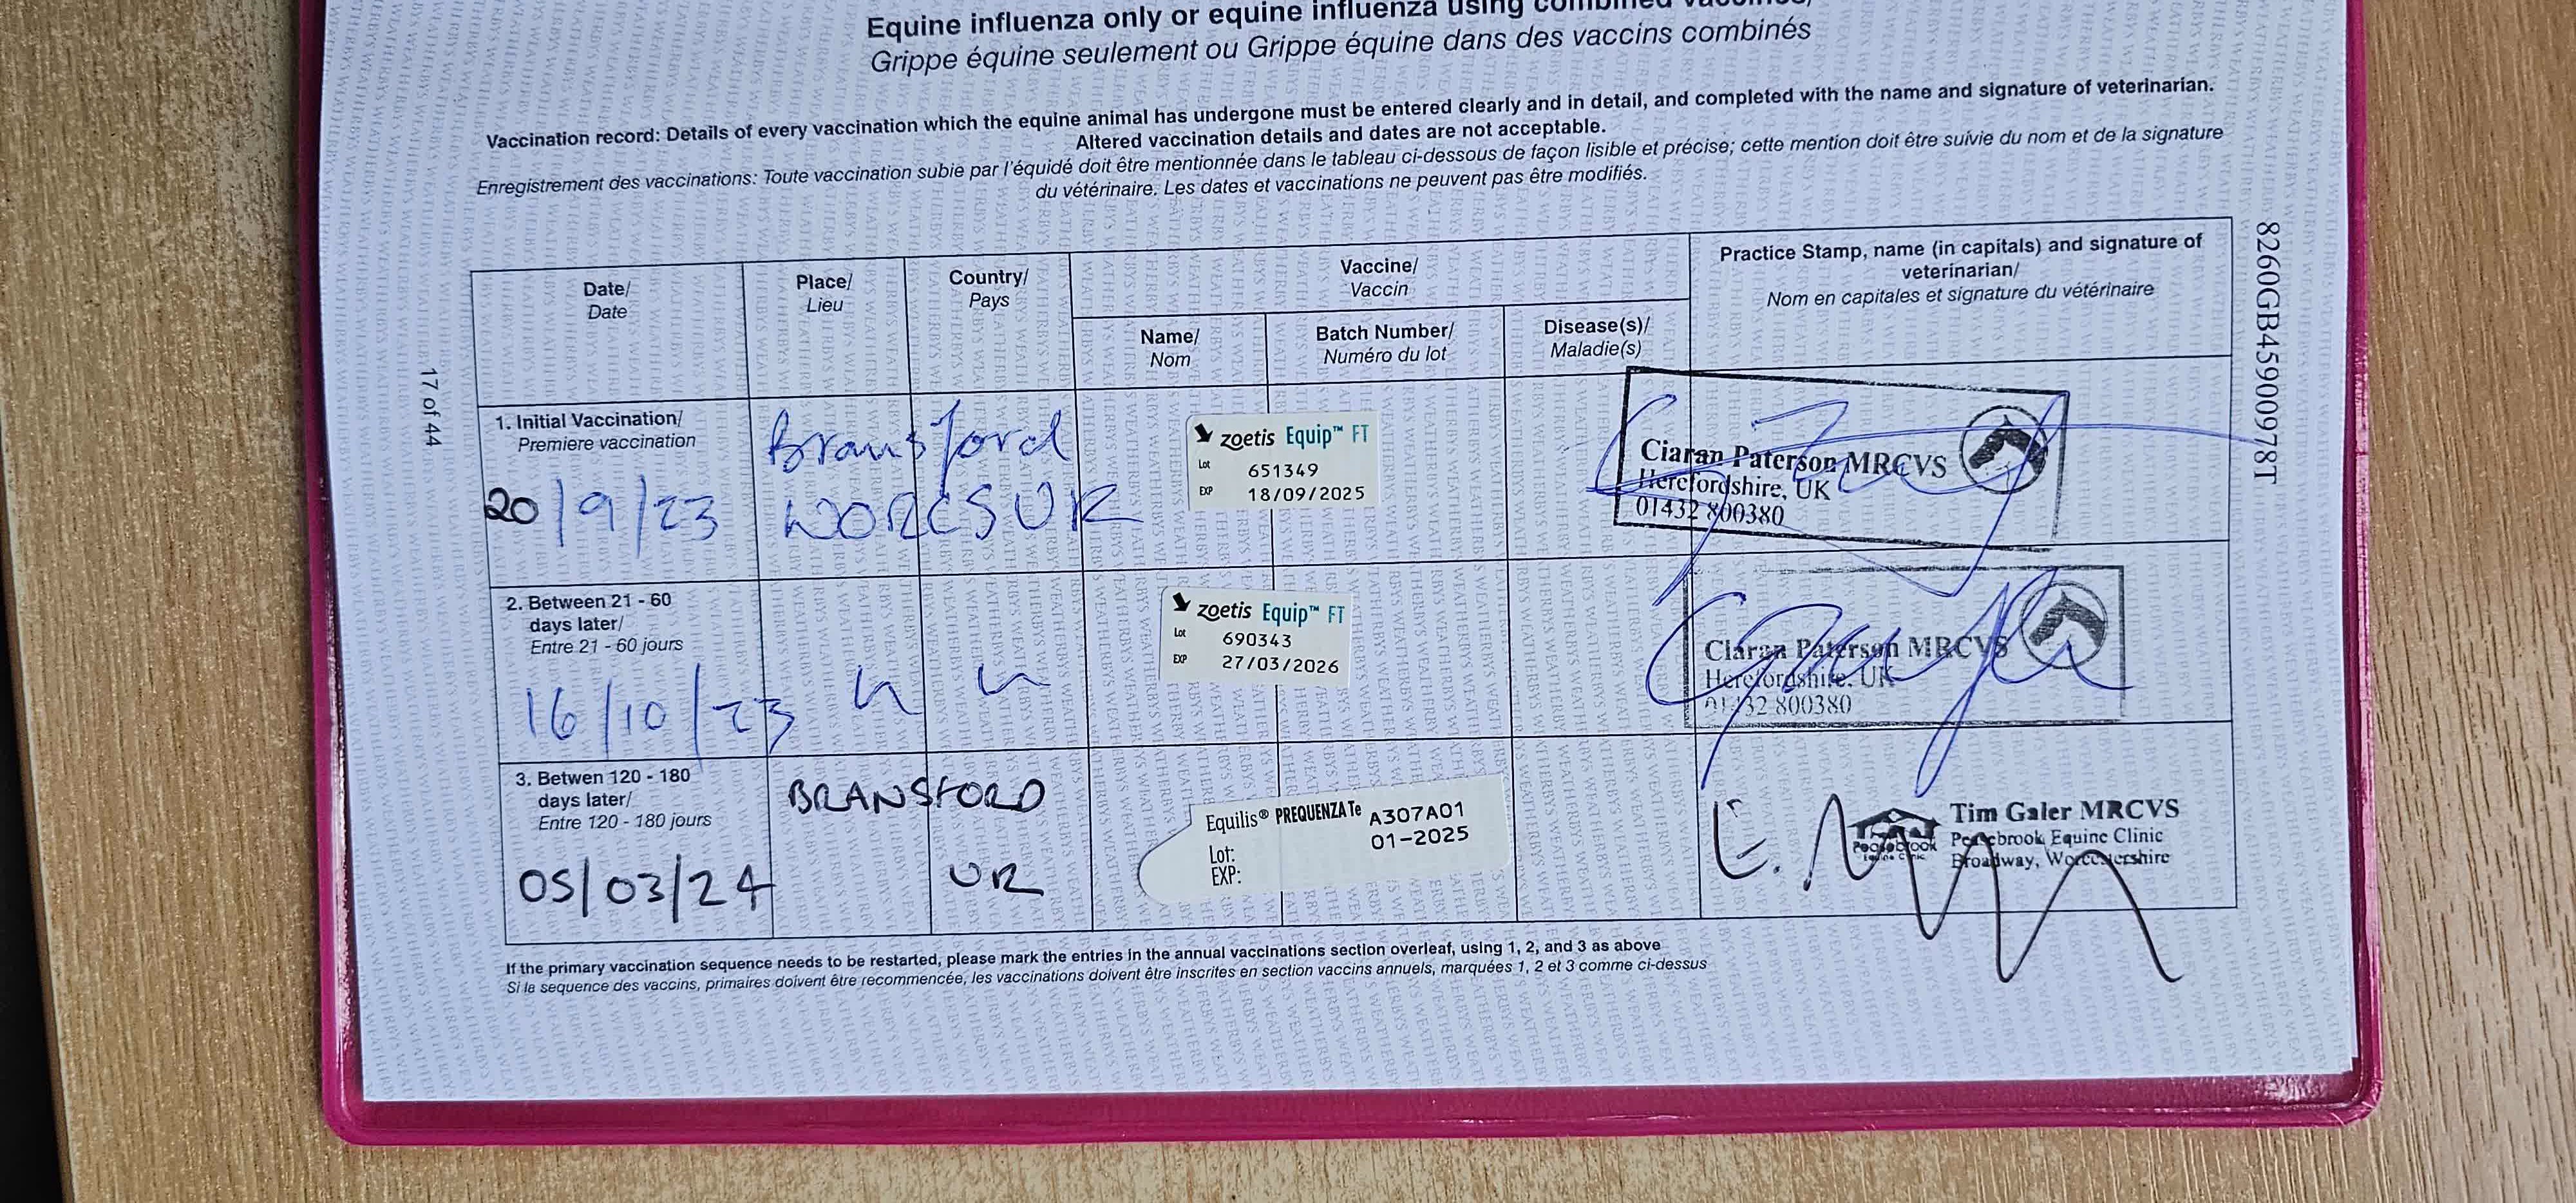 Equine influenza only or equine influenza using combined vaccines/
Grippe équine seulement ou Grippe équine dans des vaccins combinés
Vaccination record: Details of every vaccination which the equine animal has undergone must be entered clearly and in detail, and completed with the name and signature of veterinarian.
Altered vaccination details and dates are not acceptable.
Enregistrement des vaccinations: Toute vaccination subie par l'équidé doit être mentionnée dans le tableau ci-dessous de façon lisible et précise; cette mention doit être suivie du nom et de la signature
du vétérinaire. Les dates et vaccinations ne peuvent pas être modifiés.
8260GB45900978T
17 of 44
Date/
Date
Place/
Lieu
Country/
Pays
Vaccine/
Vaccin
Name/
Nom
Batch Number/
Numéro du lot
Disease(s)/
Maladie(s)
Practice Stamp, name (in capitals) and signature of
veterinarian/
Nom en capitales et signature du vétérinaire
1. Initial Vaccination/
Premiere vaccination
20/9/23
Bransford
WORCS UK
zoetis Equip™ FT
Lot 651349
EXP 18/09/2025
Ciaran Paterson MRCVS
Herefordshire, UK
01432 800380
2. Between 21 - 60
days later/
Entre 21 - 60 jours
16/10/23
zoetis Equip™ FT
Lot 690343
EXP 27/03/2026
Ciaran Paterson MRCVS
Herefordshire, UK
01432 800380
3. Betwen 120 - 180
days later/
Entre 120 - 180 jours
05/03/24
BRANSFORD
UK
Equilis® PREQUENZA Te A307A01
01-2025
Lot:
EXP:
Tim Galer MRCVS
Peasebrook Equine Clinic
Broadway, Worcestershire
Peasebrook
Equine Clinic
If the primary vaccination sequence needs to be restarted, please mark the entries in the annual vaccinations section overleaf, using 1, 2, and 3 as above
Si la sequence des vaccins, primaires doivent être recommencée, les vaccinations doivent être inscrites en section vaccins annuels, marquées 1, 2 et 3 comme ci-dessus
WEATHERBYS